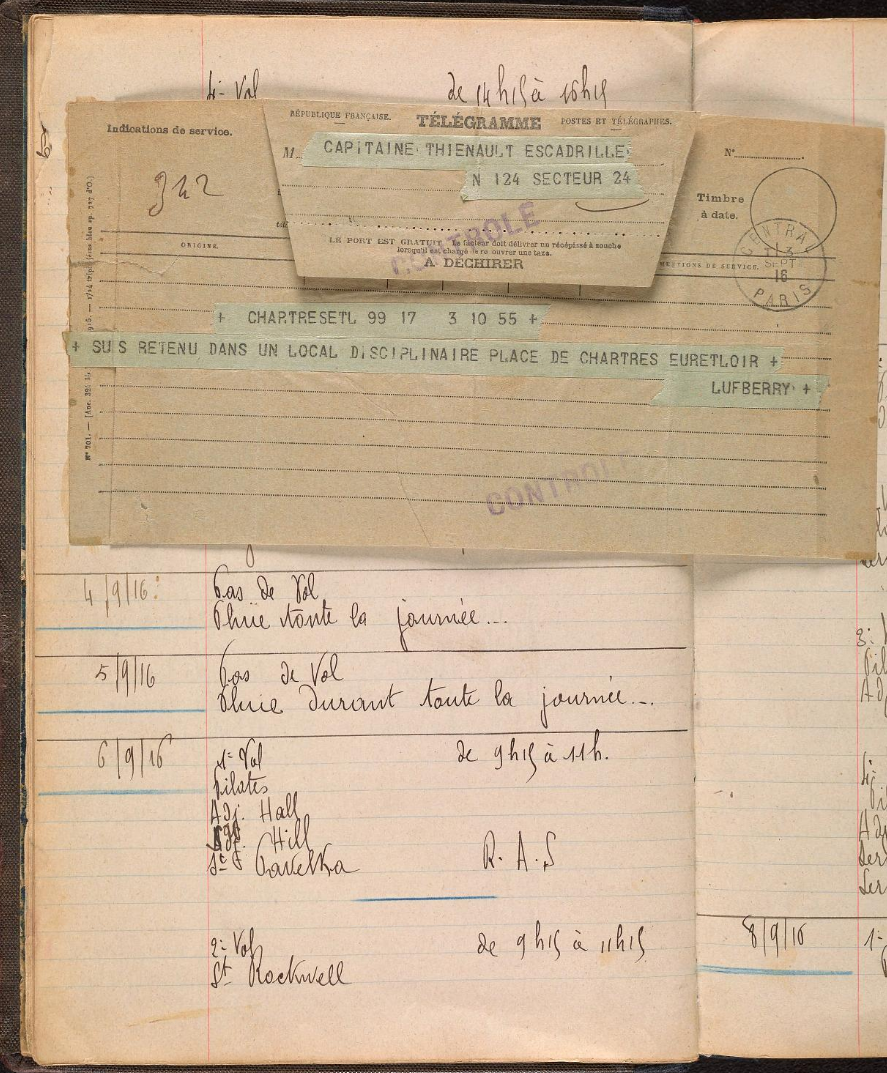 4- Vol de 14h15 à 16h15
Indications de service.
RÉPUBLIQUE FRANÇAISE. TÉLÉGRAMME POSTES ET TÉLÉGRAPHES.
M. CAPITAINE THIENAULT ESCADRILLE
N 124 SECTEUR 24
342
N°
Timbre
à date.
CENTRAL
13
SEPT
16
PARIS
CONTROLE
ORIGINE.
LE PORT EST GRATUIT. Le facteur doit délivrer un récépissé à souche
lorsqu'il est chargé de recouvrer une taxe.
A DÉCHIRER
MENTIONS DE SERVICE.
+ CHARTRESETL 99 17 3 10 55 +
+ SUIS RETENU DANS UN LOCAL DISCIPLINAIRE PLACE DE CHARTRES EURETLOIR +
LUFBERRY +
CONTROLE
4/9/16: Pas de Vol
Pluie toute la journée...
5/9/16 Pas de Vol
Pluie durant toute la journée...
6/9/16 1- Vol de 9h15 à 11h.
Pilotes
Adj. Hall
Hill
St Pavelka R.A.S
2- Vol de 9h15 à 11h15
St Rockwell
3-
4-
8/9/16 1-